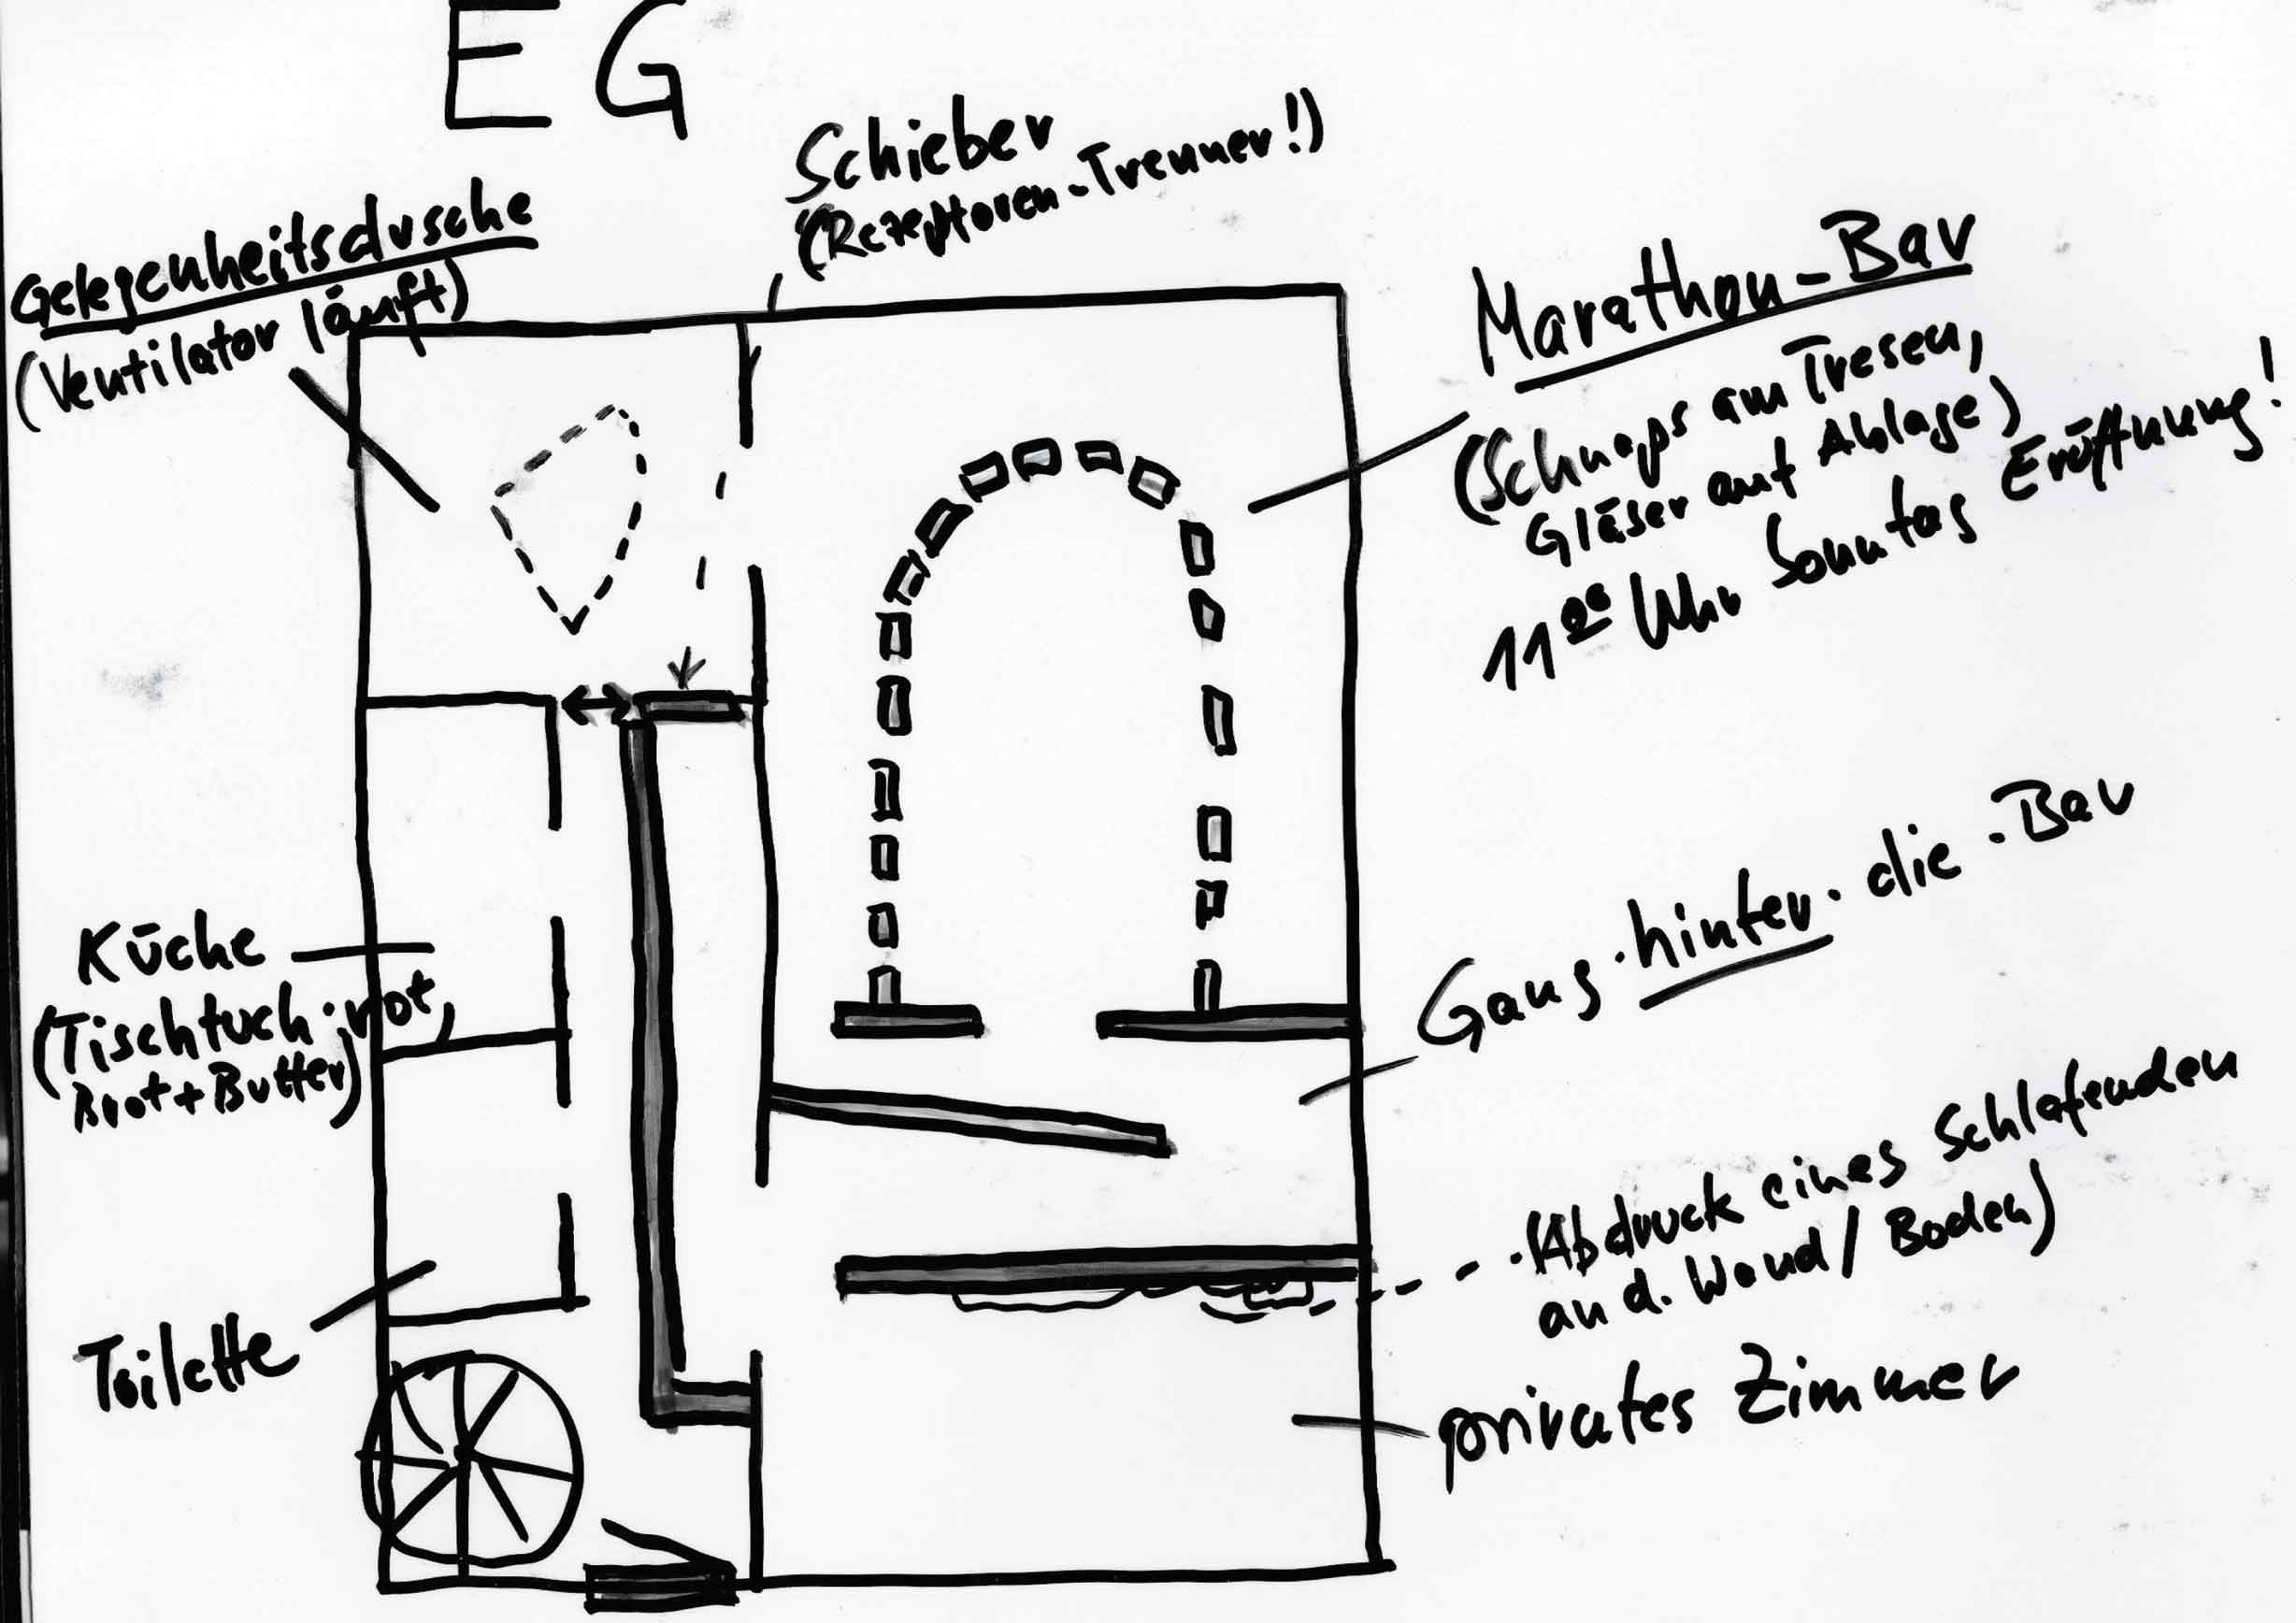 EG
Schieber
(Rezeptoren-Trenner!)
Gelegenheitsdusche
(Ventilator läuft)
Marathon-Bar
(Schnaps am Tresen,
Gläser auf Ablage)
11²⁰ Uhr Sonntag Eröffnung!
Gang-hinter-die-Bar
Küche
(Tischtuch:rot,
Brot+Butter)
(Abdruck eines Schlafenden
an d. Wand/Boden)
Toilette
privates Zimmer